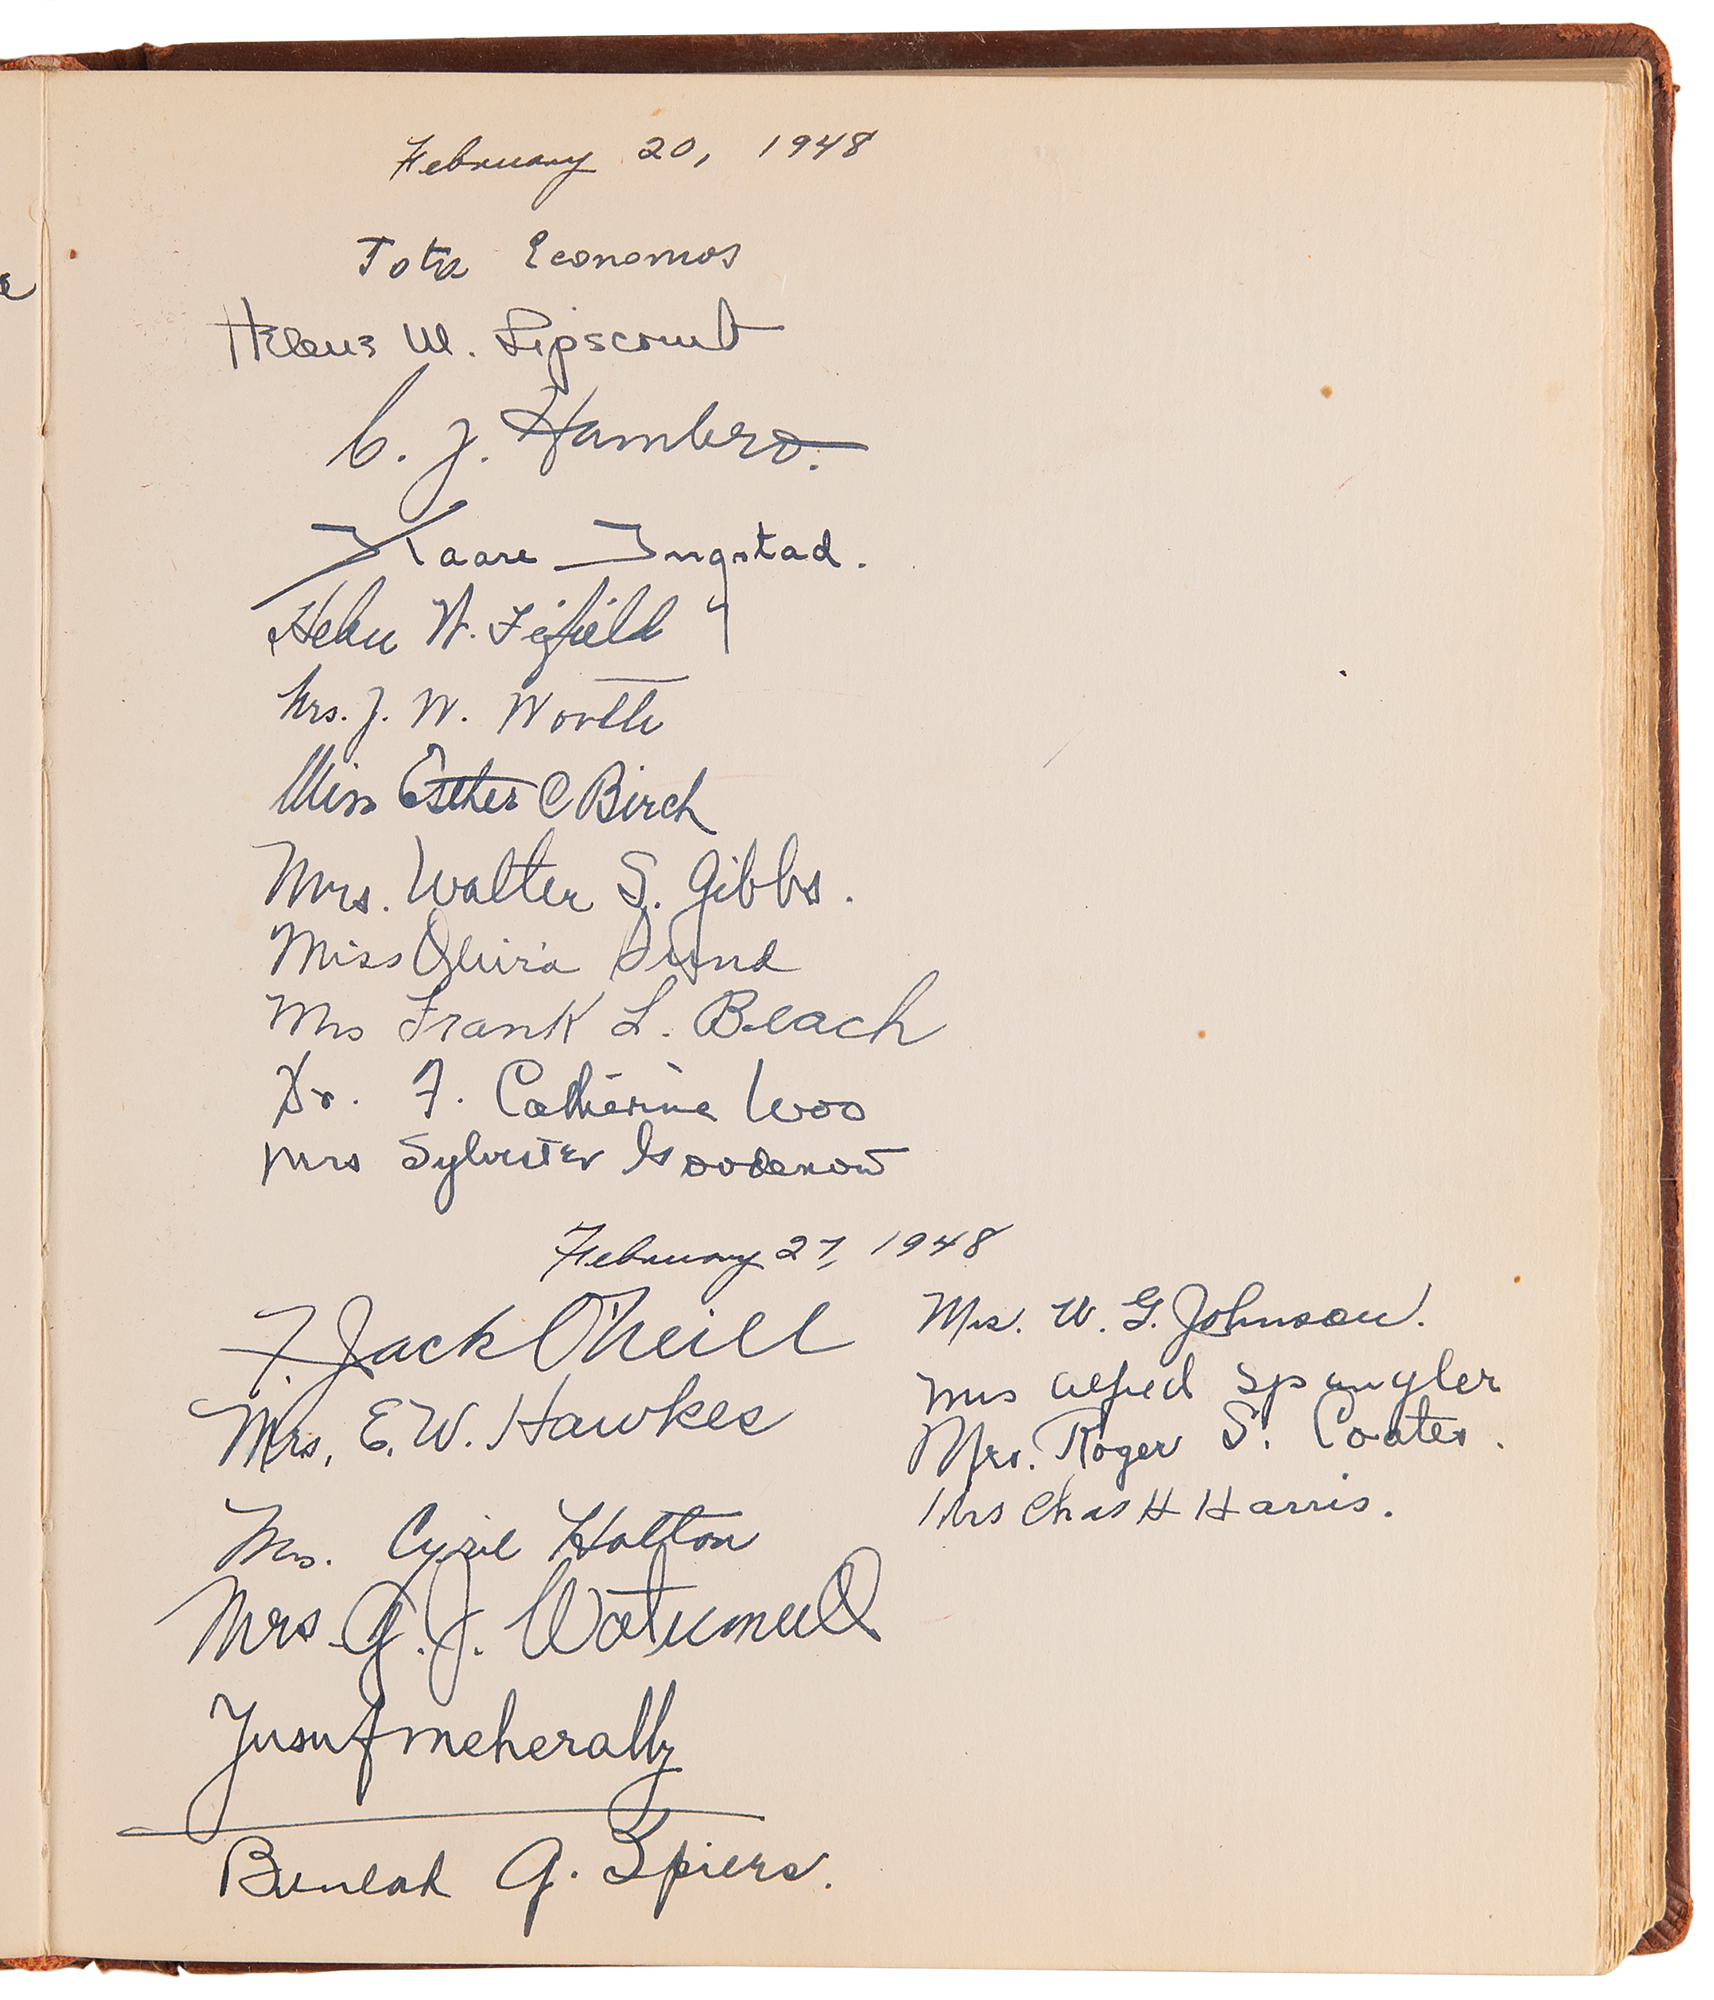 February 20, 1948
Tota Economos
Helene M. Lipscomb
C. J. Hambro.
Kaare Ingstad.
Helen W. Fifield
Mrs. J. W. Worth
Miss Esther C Birch
Mrs. Walter S. Gibbs.
Miss Olivia Sund
Mrs Frank L. Beach
Dr. F. Catherine Woo
Mrs Sylvester Goodenow
February 27, 1948
F. Jack O'Neill
Mrs. E. W. Hawkes
Mrs. Cyril Holton
Mrs. G. J. Watumull
Yusuf Meherally
Beulah G. Spiers.
Mrs. W. G. Johnson.
Mrs Alfred Spangler
Mrs. Roger S. Coates.
Mrs Chas H Harris.